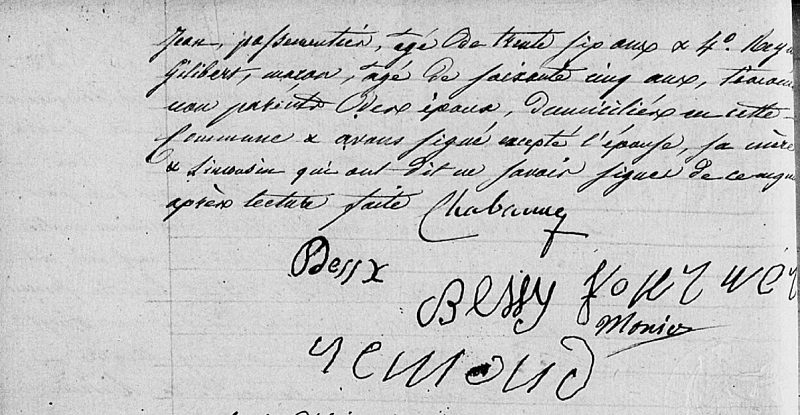 Jean, passementier, âgé de trente six ans & 4°.
Gilibert, maçon, âgé de soixante cinq ans,
non parents des époux, domiciliés en cette
Commune & avons signé excepté l'épouse, sa mère
& Limousin qui ont dit ne savoir signer de ce
après lecture faite Chabanne
Bessy
Bessy
Monier
remond